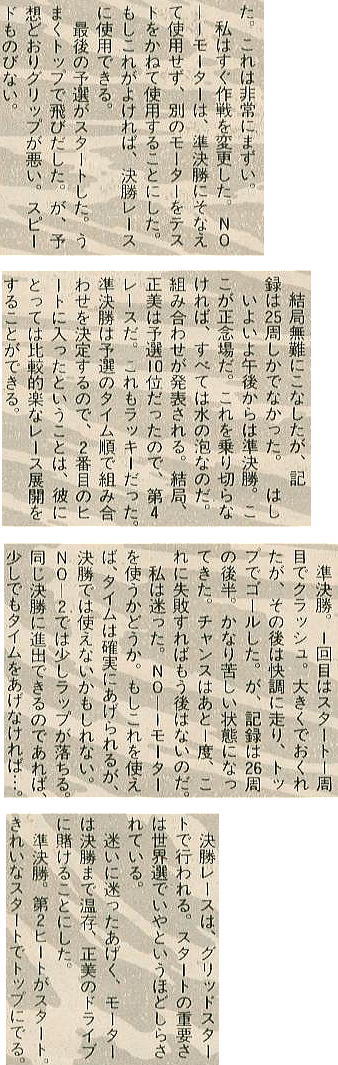 た。これは非常にまずい。
　私はすぐ作戦を変更した。NO
―1モーターは、準決勝にそなえ
て使用せず、別のモーターをテス
トをかねて使用することにした。
もしこれがよければ、決勝レース
に使用できる。
　最後の予選がスタートした。う
まくトップで飛びだした。が、予
想どおりグリップが悪い。スピー
ドものびない。
　結局無難にこなしたが、記
録は25周しかでなかった。
　いよいよ午後からは準決勝。こ
こが正念場だ。これを乗り切らな
ければ、すべては水の泡なのだ。
組み合わせが発表される。結局、
正美は予選10位だったので、第4
レースだ。これもラッキーだった。
準決勝は予選のタイム順で組み合
わせを決定するので、2番目のヒ
ートに入ったということは、彼に
とっては比較的楽なレース展開を
することができる。
　準決勝。1回目はスタート1周
目でクラッシュ。大きくでおくれ
たが、その後は快調に走り、トッ
プでゴールした。が、記録は26周
の後半。かなり苦しい状態になっ
てきた。チャンスはあと1度、こ
れに失敗すればもう後はないのだ。
　私は迷った。NO―1モーター
を使うかどうか。もしこれを使え
ば、タイムは確実にあげられるが、
決勝では使えないかもしれない。
NO―2では少しラップが落ちる。
同じ決勝に進出できるのであれば、
少しでもタイムをあげなければ…。
　決勝レースは、グリッドスター
トで行われる。スタートの重要さ
は世界選でいやというほどしらさ
れている。
　迷いに迷ったあげく、モーター
は決勝まで温存、正美のドライブ
に賭けることにした。
　準決勝。第2ヒートがスタート。
きれいなスタートでトップにでる。